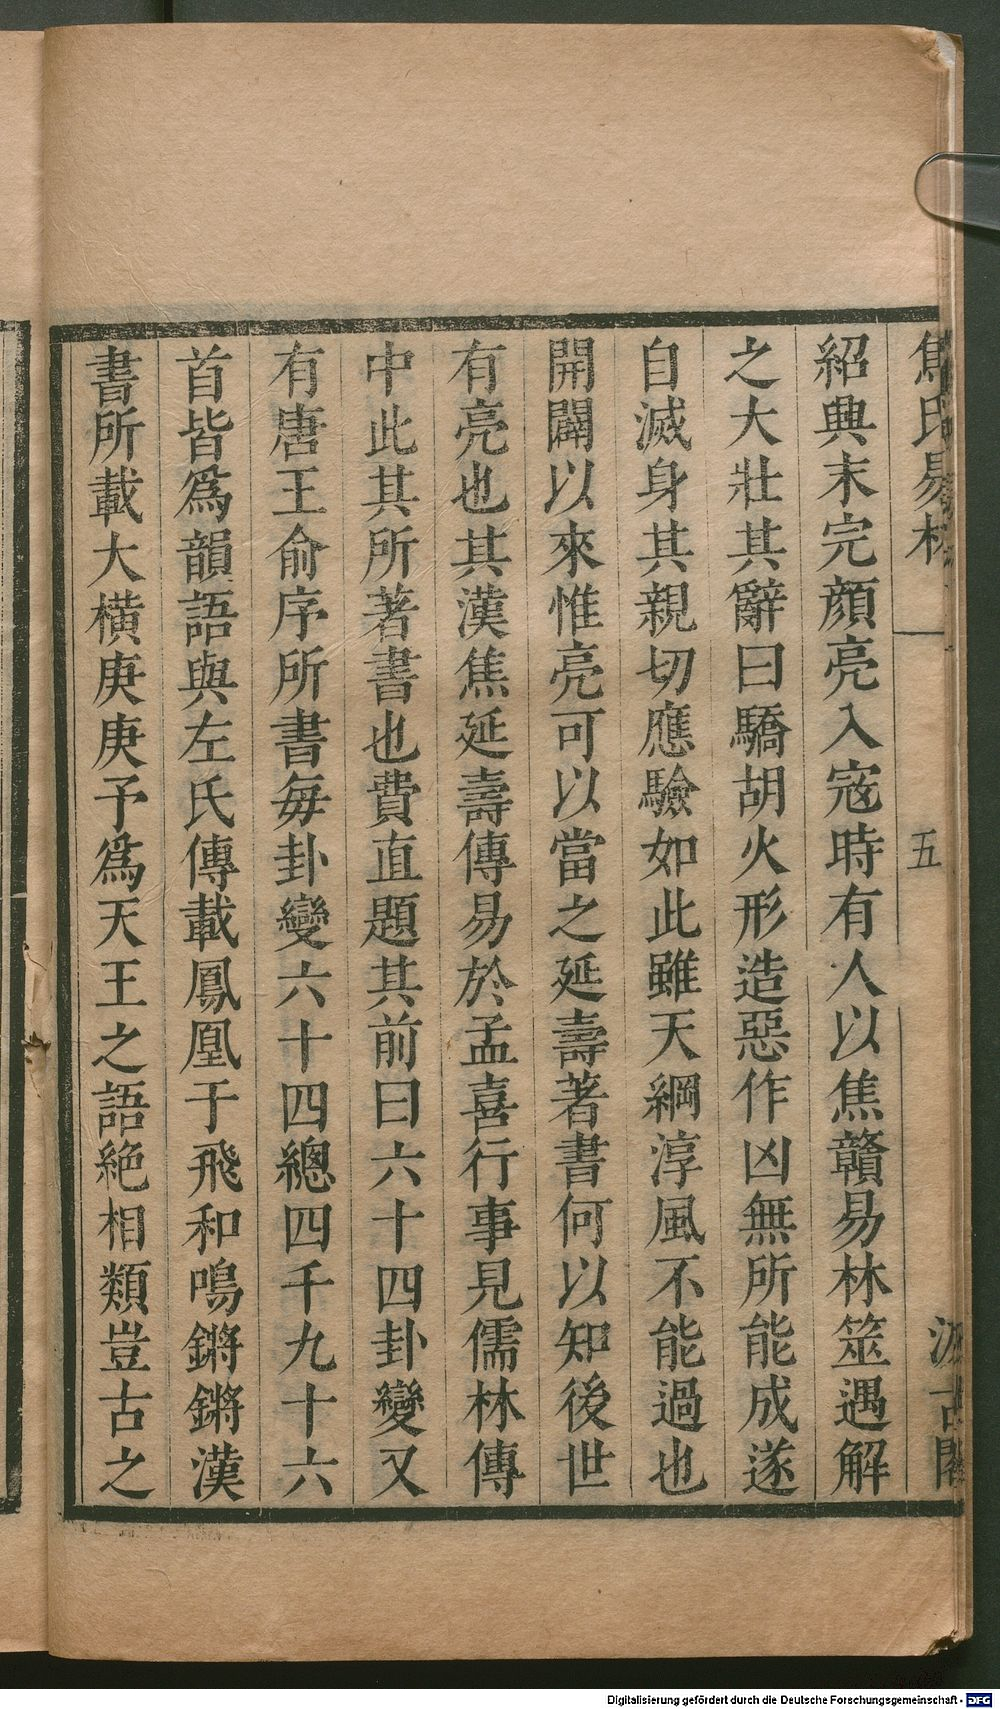 焦氏易林
五
汲古閣
紹興末完顏亮入寇時有人以焦贛易林筮遇解
之大壯其辭曰驕胡火形造惡作凶無所能成遂
自滅身其親切應驗如此雖天綱淳風不能過也
開闢以來惟亮可以當之延壽著書何以知後世
有亮也其漢焦延壽傳易於孟喜行事見儒林傳
中此其所著書也費直題其前曰六十四卦變又
有唐王俞序所書每卦變六十四總四千九十六
首皆爲韻語與左氏傳載鳳凰于飛和鳴鏘鏘漢
書所載大橫庚庚予爲天王之語絕相類豈古之
Digitalisierung gefördert durch die Deutsche Forschungsgemeinschaft - DFG